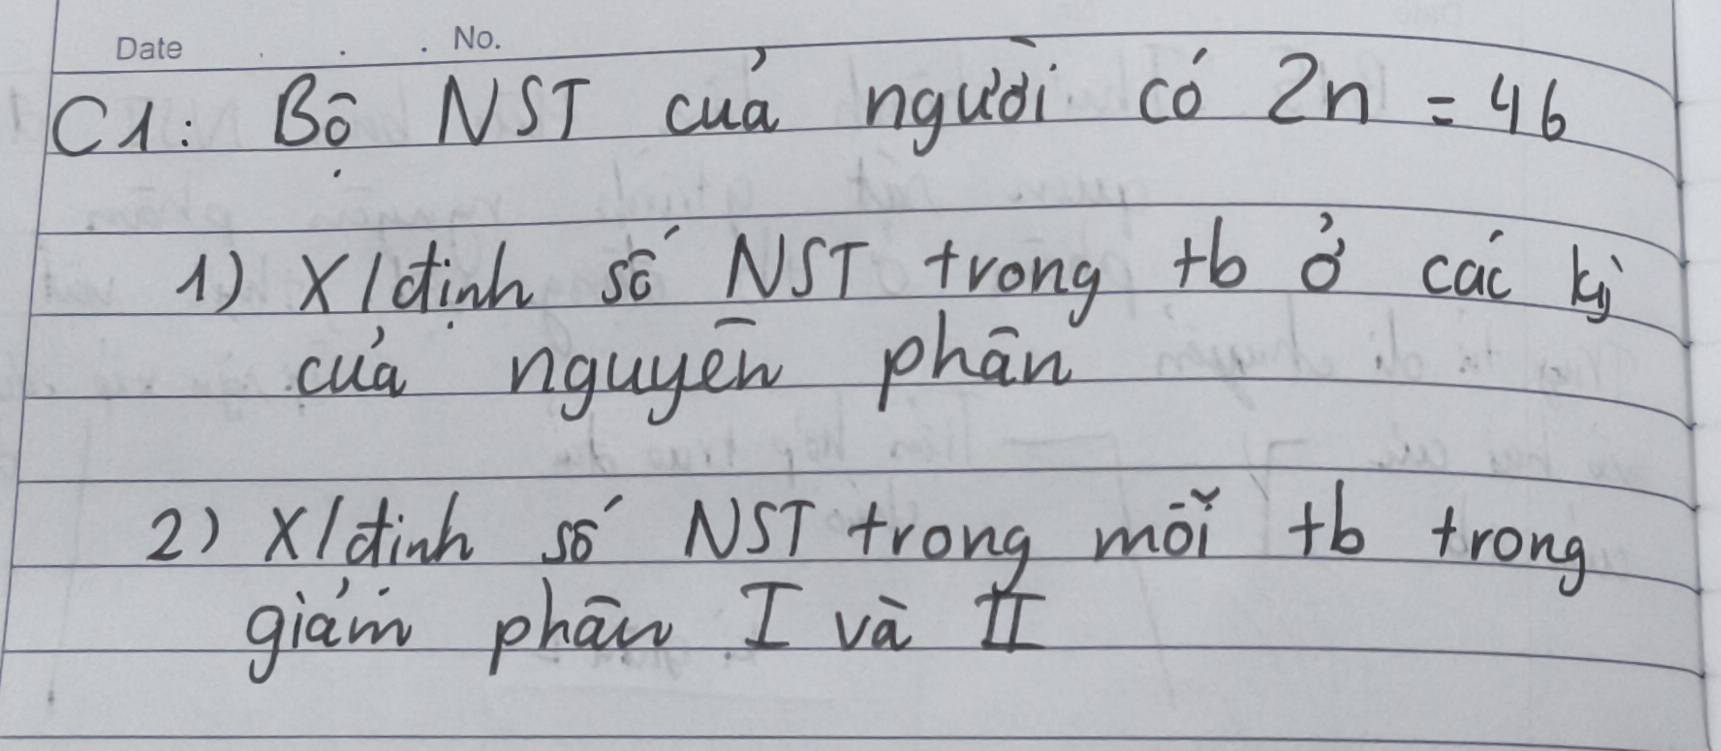 Date . . . No.
C1: Bộ NST của người có 2n = 46
1) X/định số NST trong tb ở các kỳ
của nguyên phân
2) X/định số NST trong mỗi tb trong
giảm phân I và II